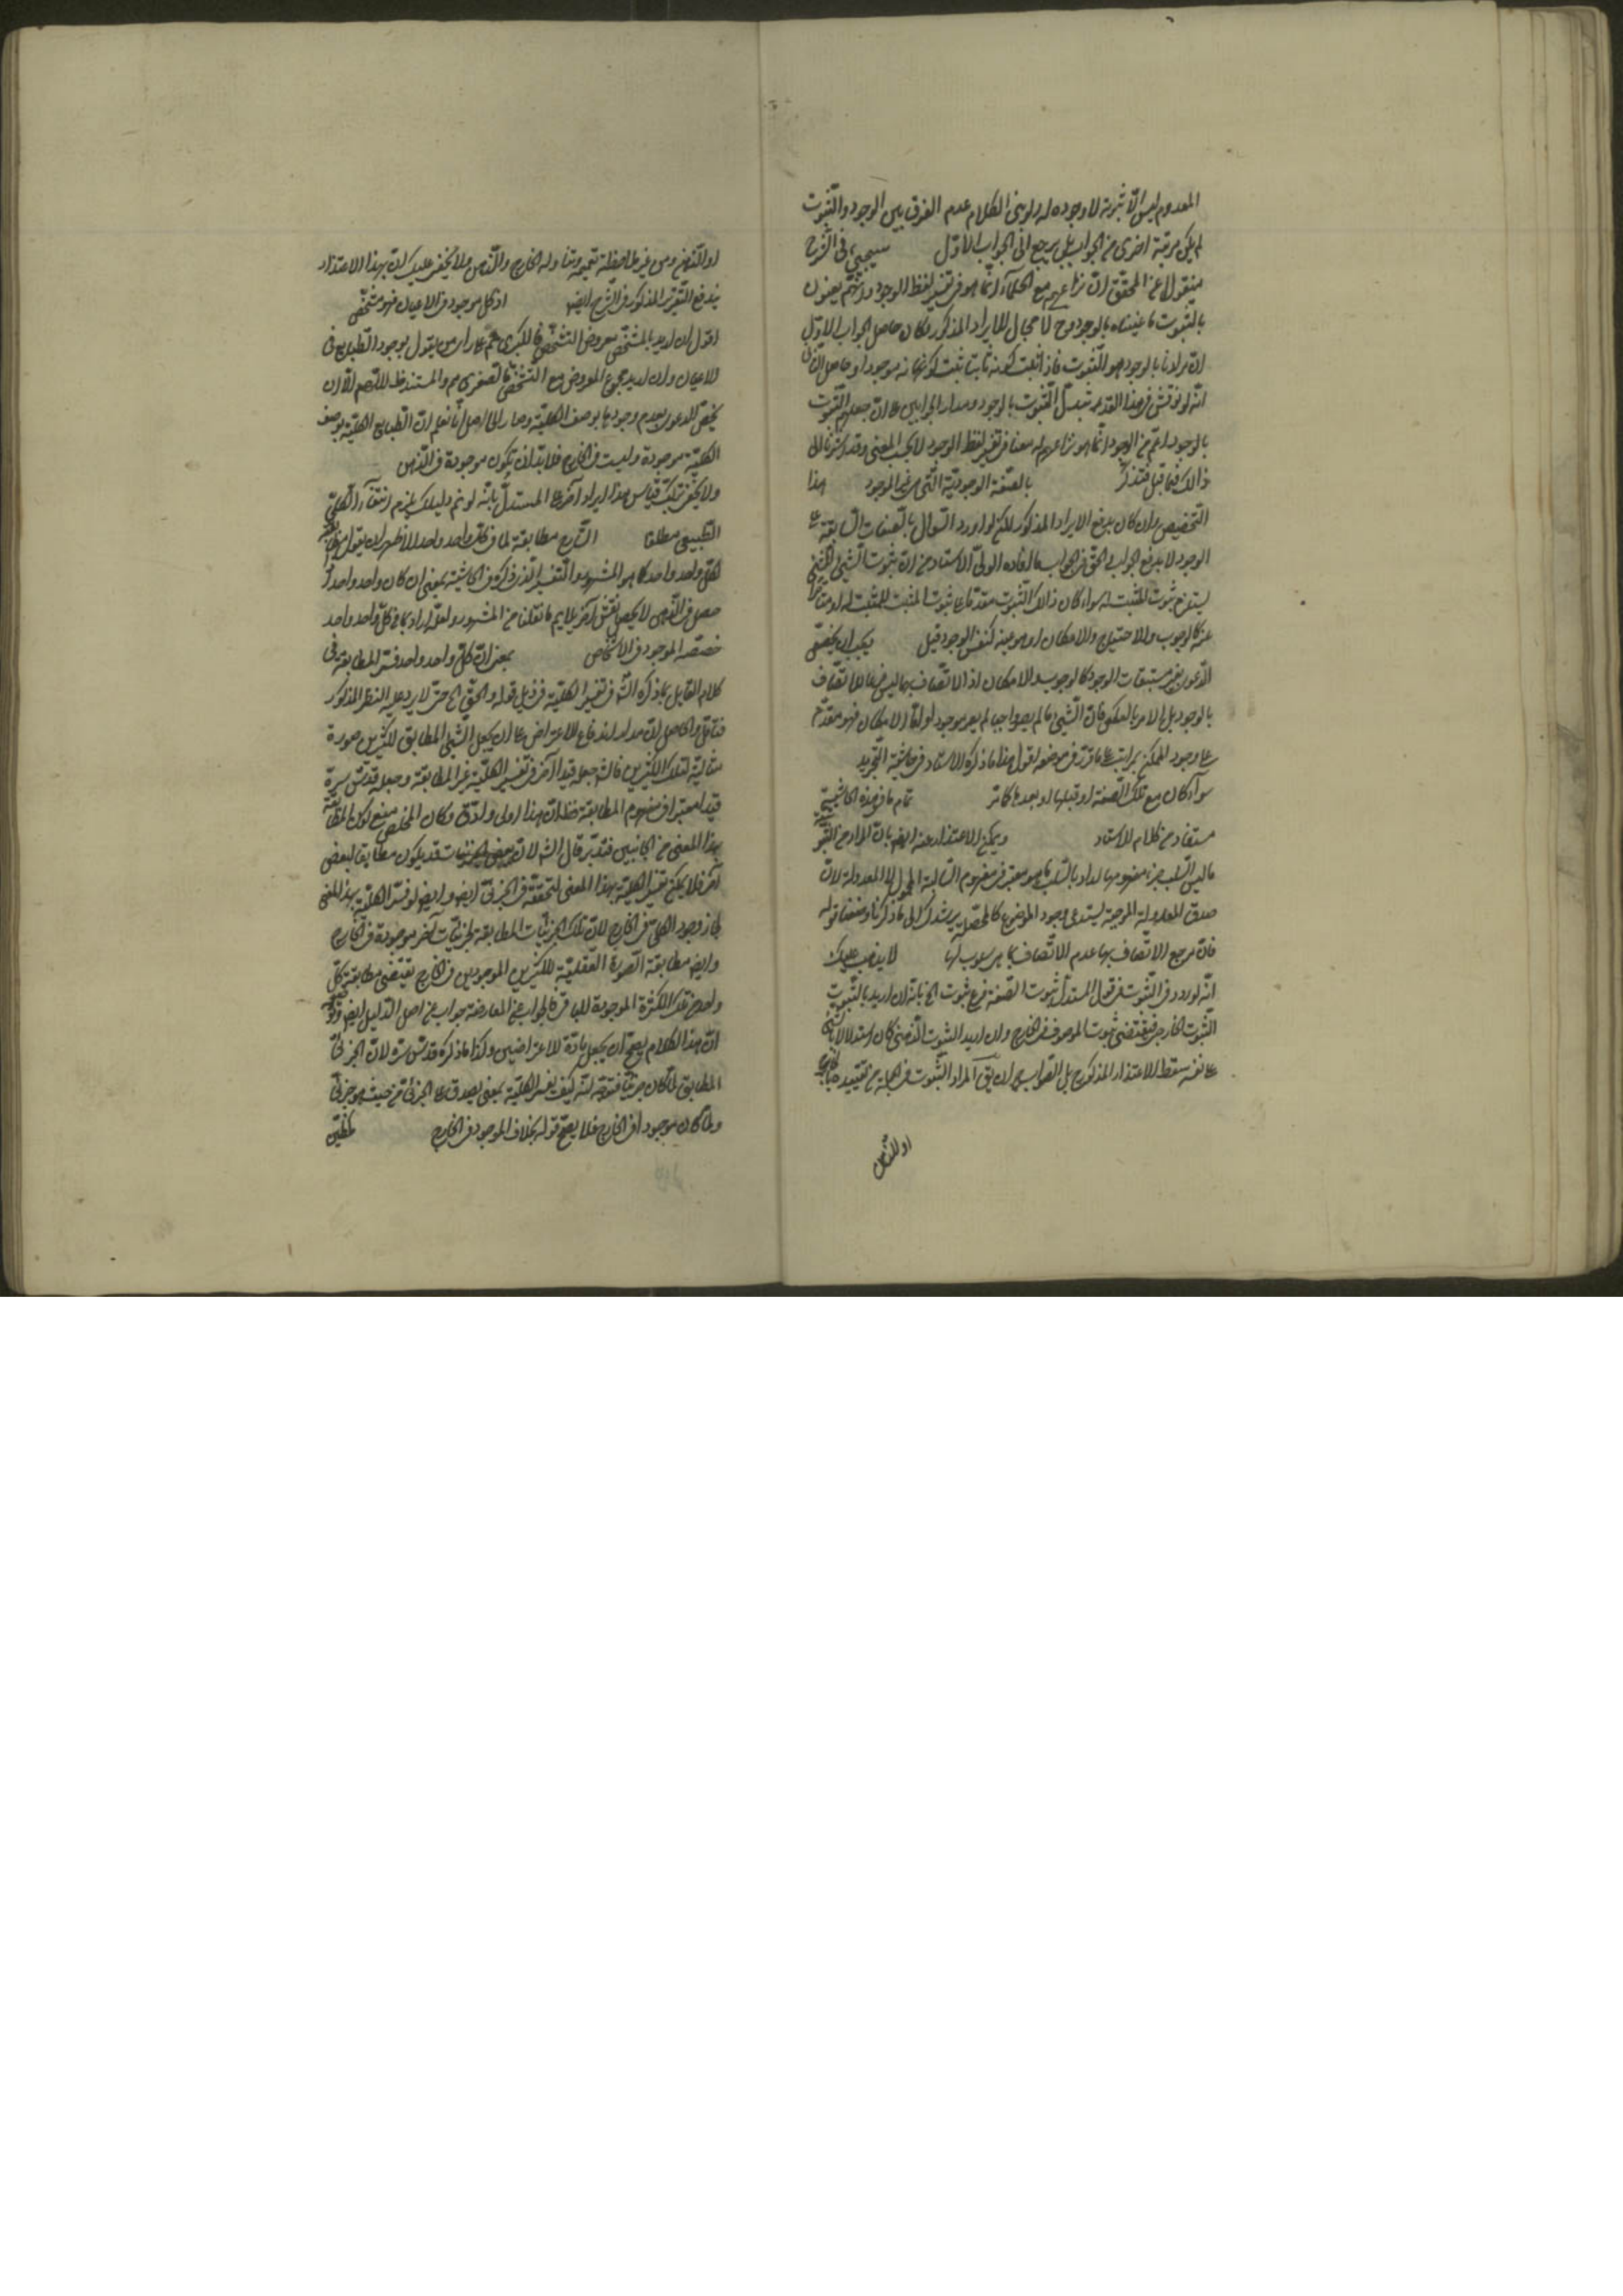 المعدوم ليس الا ثبوته لا وجوده له ولو بنى الكلام عدم الفرق بين الوجود والثبوت
لم يكن مرتبة اخرى من الجواب بل يرجع الى الجواب الاول سيجيئ في الشرح
منقولا عن المحقق ان نزاعهم مع الحكماء انما هو في تفسير لفظ الوجود وانهم يعنون
بالثبوت ما عنيناه بالوجود وح لا مجال للايراد المذكور وكان حاصل الجواب الاول
ان مرادنا بالوجود هو الثبوت فاذا ثبت كونه ثابتا ثبت كونه موجودا وحاصل الثاني
انه لو نوقش في هذا القدر نبدل الثبوت بالوجود ومدار الجوابين على ان جعلهم الثبوت
بالوجود اعم من الوجود انما هو نزاعهم معنا في تفسير لفظ الوجود لا بحسب المعنى وقد اشرنا الى
ذلك فيما قبل فتذكر بالصفة الوجودية التي هي غير الوجود هذا
التخصيص وان كان يدفع الايراد المذكور لكن لو اورد السوال بالصفات السابقة على
الوجود لا يدفع الجواب والحق في الجواب ما افاده المولى الاستاد من ان ثبوت الشيئ للشيئ
يستلزم ثبوت المثبت له سواء كان ذلك الثبوت مقدما على ثبوت المثبت للمثبت له او متاخرا
عنه كالوجوب والاحتياج والامكان او هو عينه كنفس الوجود قيل يجب ان يخص
الدعوى بغير مستتبعات الوجود كالوجوب والامكان اذ الاتصاف بها ليس فرعا للاتصاف
بالوجود بل الامر بالعكس فان الشيئ ما لم يصر واجبا لم يصر موجودا واما الامكان فهو مقدم
على وجود الممكن بمراتب على ما قرر في موضعه اقول هذا ما ذكره الاستاد في حاشية التجريد
سواء كان مع تلك الصفة او قبلها او بعدها تمام ما في هذه الحاشية
مستفاد من كلام الاستاد ويمكن الاعتذار عنه ايضا بان المراد من الثبو
ما ليس السلب جزء مفهومها المراد بالسلب ما هو معتبر في مفهوم السالبة المحمول لا المعدولة لان
صدق المعدولة الموجبة يستدعي وجود الموضوع كالمحصلة يرشدك الى ما ذكرنا وصفنا قوله
فان مرجع الاتصاف بها عدم الاتصاف بما هي سلوب لها لا يذهب عليك
انه لو ردد في الثبوت في قول المستدل ثبوت الصفة فرع ثبوت الخ بانه ان اريد بالثبوت
الثبوت الخارجي فيقتضي ثبوت الموصوف في الخارج وان اريد الثبوت الذهني كان استدلالا بالشيئ
على نفسه سقط الاعتذار المذكور بل الصواب ان يق المراد الثبوت في الجملة من غير تقييده بالخارج
او الذهن
او الذهن ومن غير ملاحظة تعميمه وتناوله الخارج والذهن ولا يخفى عليك ان بهذا الاعتذار
يندفع التقرير المذكور في الشرح ايضا اذ كل موجود في الاعيان فهو مشخص
اقول ان اريد بالمشخص معروض التشخص فالكبرى مم على راى من يقول بوجود الطبايع في
الاعيان وان اريد مجموع المعروض مع التشخص فالصغرى مم والمستند ظ اللهم الا ان
يخص الدعوى بعدم وجودها بوصف الكلية وصار الحاصل انا نعلم ان الطبايع الكلية بوصف
الكلية موجودة وليست في الخارج فلابد ان تكون موجودة في الذهن
ولا يخفى ان قياس هذا ايراد آخر على المستدل بانه لو تم دليلك يلزم انتفاء الكلي
الطبيعي مطلقا الشارح مطابقة لما في كل واحد واحد الاظهر ان يقول
لكل واحد واحد كما هو المشهور والتفسير الذي ذكره في الحاشية بمعنى ان كان واحد واحد
حصل في الذهن لا يحصل نقش آخر يلايم ما نقلنا من المشهور ولعله اراد بما في كل واحد واحد
حصته الموجودة في الاشخاص بمعنى ان كل واحد واحد فسر المطابقة في
كلام القايل بما ذكره الش في تفسير الكلية في ذيل قوله والحق الخ حتى لا يرد عليه النظر المذكور
فتامل والحاصل ان مدار اندفاع الاعتراض على ان يجعل الشيئ المطابق لكثيرين صورة
مثالية لتلك الكثيرين فالش جعله قيدا آخر في تفسير الكلية غير المطابقة وجعله قدس سره
قيدا معتبرا في مفهوم المطابقة فظ ان هذا اولى وادق وكان المخلص منع كون المطابقة
بهذا المعنى من الجانبين فتدبر قال الش لان بعض الجزئيات قد يكون مطابقا لبعض
آخر فلا يمكن تفسير الكلية بهذا المعنى لتحققه في الجزئي ايضا وايضا لو فسر الكلية بهذا المعنى
لجاز وجود الكلي في الخارج لان تلك الجزئيات المطابقة لجزئيات آخر موجودة في الخارج
وايضا مطابقة الصورة العقلية للكثيرين الموجودين في الخارج يقتضي مطابقة كل
واحد من تلك الكثرة الموجودة للباقي فالجواب عن المعارضة جواب عن اصل الدليل ايضا
ان هذا الكلام يصح ان يجعل مادة للاعتراضين وكذا ما ذكره قدس سره لان الجزئي
المطابق لما كان جزئيا فتوجه انه كيف يفسر الكلية بمعنى يصدق على الجزئي من حيث هو جزئي
ولما كان موجودا في الخارج فلا يصح قوله بخلاف الموجود في الخارج